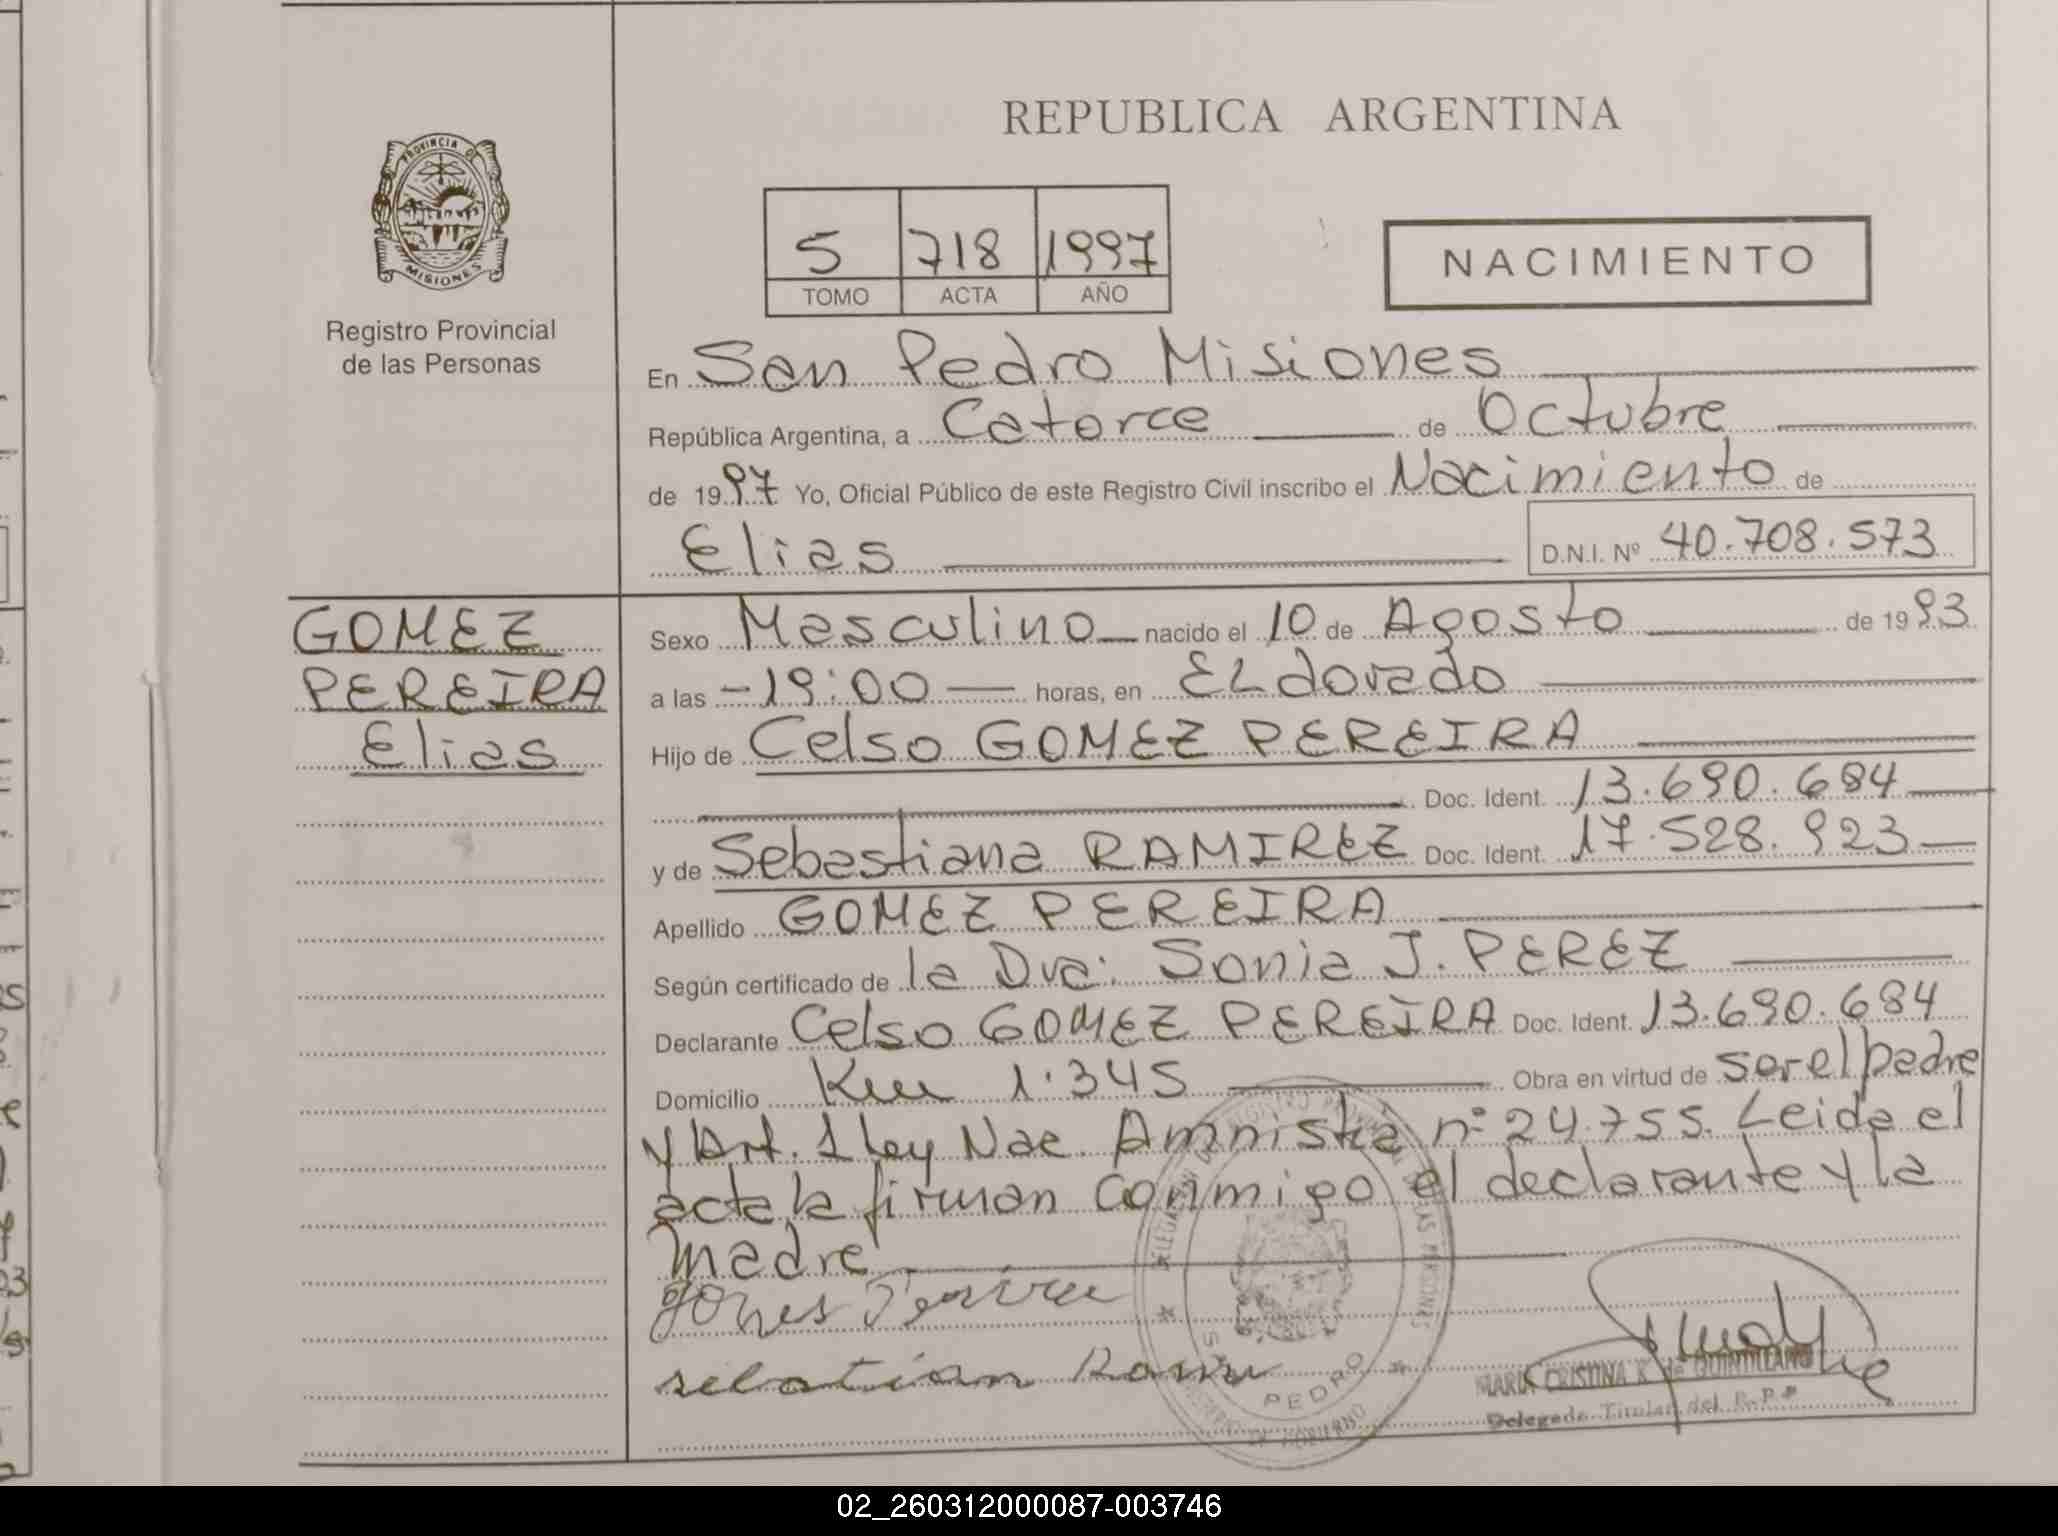 REPUBLICA ARGENTINA
PROVINCIA DE
MISIONES
Registro Provincial
de las Personas
5 718 1997
TOMO ACTA AÑO
NACIMIENTO
En San Pedro Misiones
República Argentina, a Catorce de Octubre
de 1997 Yo, Oficial Público de este Registro Civil inscribo el Nacimiento de
Elias D.N.I. Nº 40.708.573
GOMEZ
PEREIRA
Elias
Sexo Masculino nacido el 10 de Agosto de 1993
a las -19:00 horas, en ELdorado
Hijo de Celso GOMEZ PEREIRA
Doc. Ident. 13.690.684
y de Sebastiana RAMIREZ Doc. Ident. 17.528.923
Apellido GOMEZ PEREIRA
Según certificado de la Dra: Sonia J. PEREZ
Declarante Celso GOMEZ PEREIRA Doc. Ident. 13.690.684
Domicilio Km 1.345 Obra en virtud de ser el padre
y Art. 1 ley Nac. Amnistia nº 24.755. Leida el
acta la firman conmigo el declarante y la
madre
SAN PEDRO
MARIA CRISTINA K de QUINTILLANO
Delegada Titular del R.P.P
02_260312000087-003746